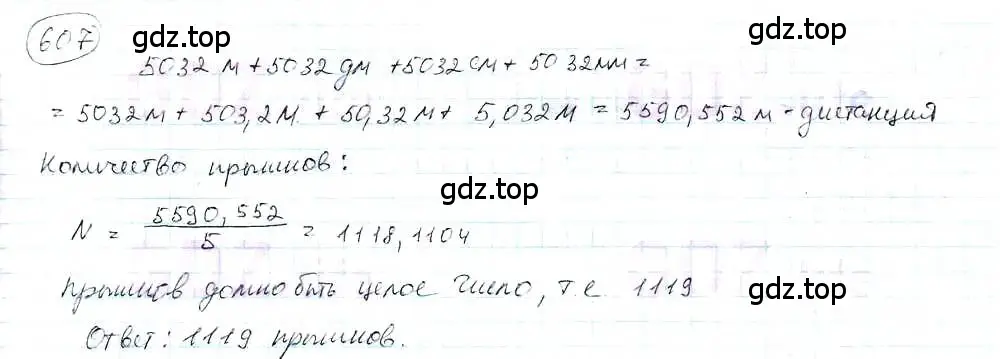 607 gdz.top
5032 м + 5032 дм + 5032 см + 5032 мм = gdz.top
= 5032 м + 503,2 м + 50,32 м + 5,032 м = 5590,552 м - дистанция
Количество прыжков:
gdz.top
N = 5590,552 / 5 = 1118,1104
Прыжков должно быть целое число, т.е. 1119
gdz.top gdz.top
Ответ: 1119 прыжков.